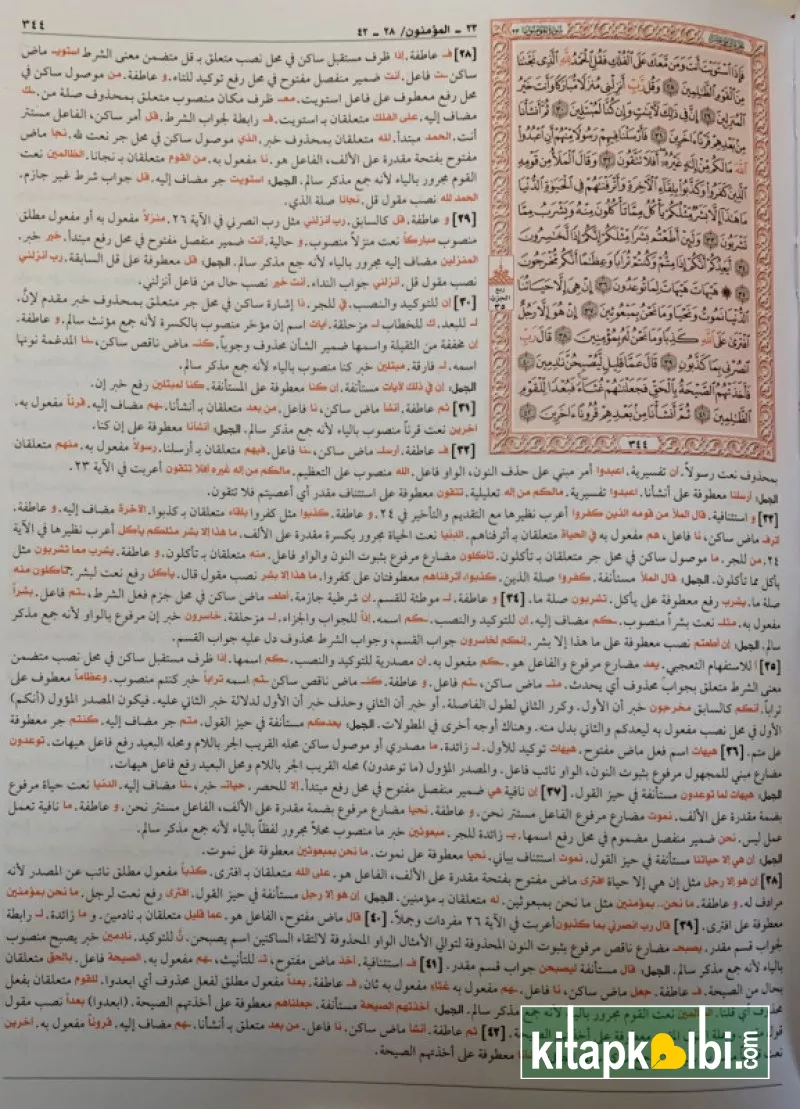 ٢٣ - المؤمنون/ ٢٨ - ٤٢
٣٤٤
فَإِذَا اسْتَوَيْتَ أَنتَ وَمَن مَّعَكَ عَلَى الْفُلْكِ فَقُلِ الْحَمْدُ لِلَّهِ الَّذِي نَجَّىٰنَا
مِنَ الْقَوْمِ الظَّٰلِمِينَ ٢٨ وَقُل رَّبِّ أَنزِلْنِي مُنزَلًا مُّبَارَكًا وَأَنتَ خَيْرُ
الْمُنزِلِينَ ٢٩ إِنَّ فِي ذَٰلِكَ لَآيَٰتٍ وَإِن كُنَّا لَمُبْتَلِينَ ٣٠ ثُمَّ أَنشَأْنَا
مِن بَعْدِهِمْ قَرْنًا آخَرِينَ ٣١ فَأَرْسَلْنَا فِيهِمْ رَسُولًا مِّنْهُمْ أَنِ اعْبُدُوا
اللَّهَ مَا لَكُم مِّنْ إِلَٰهٍ غَيْرُهُ أَفَلَا تَتَّقُونَ ٣٢ وَقَالَ الْمَلَأُ مِن قَوْمِهِ
الَّذِينَ كَفَرُوا وَكَذَّبُوا بِلِقَاءِ الْآخِرَةِ وَأَتْرَفْنَٰهُمْ فِي الْحَيَوٰةِ الدُّنْيَا
مَا هَٰذَا إِلَّا بَشَرٌ مِّثْلُكُمْ يَأْكُلُ مِمَّا تَأْكُلُونَ مِنْهُ وَيَشْرَبُ مِمَّا
تَشْرَبُونَ ٣٣ وَلَئِنْ أَطَعْتُم بَشَرًا مِّثْلَكُمْ إِنَّكُمْ إِذًا لَّخَٰسِرُونَ
٣٤ أَيَعِدُكُمْ أَنَّكُمْ إِذَا مِتُّمْ وَكُنتُمْ تُرَابًا وَعِظَٰمًا أَنَّكُم مُّخْرَجُونَ
٣٥ هَيْهَاتَ هَيْهَاتَ لِمَا تُوعَدُونَ ٣٦ إِنْ هِيَ إِلَّا حَيَاتُنَا
الدُّنْيَا نَمُوتُ وَنَحْيَا وَمَا نَحْنُ بِمَبْعُوثِينَ ٣٧ إِنْ هُوَ إِلَّا رَجُلٌ
افْتَرَىٰ عَلَى اللَّهِ كَذِبًا وَمَا نَحْنُ لَهُ بِمُؤْمِنِينَ ٣٨ قَالَ رَبِّ
انصُرْنِي بِمَا كَذَّبُونِ ٣٩ قَالَ عَمَّا قَلِيلٍ لَّيُصْبِحُنَّ نَٰدِمِينَ ٤٠
فَأَخَذَتْهُمُ الصَّيْحَةُ بِالْحَقِّ فَجَعَلْنَٰهُمْ غُثَاءً فَبُعْدًا لِّلْقَوْمِ
الظَّٰلِمِينَ ٤١ ثُمَّ أَنشَأْنَا مِن بَعْدِهِمْ قُرُونًا آخَرِينَ ٤٢
٣٤٤
[٢٨] فـ عاطفة. إذا ظرف مستقبل ساكن في محل نصب متعلق بـ قل متضمن معنى الشرط استويـ ماض
ساكن ـت فاعل. أنت ضمير منفصل مفتوح في محل رفع توكيد للتاء. و عاطفة. من موصول ساكن في
محل رفع معطوف على فاعل استويت. معـ ظرف مكان منصوب متعلق بمحذوف صلة من. ـك
مضاف إليه. على الفلك متعلقان بـ استويت. فـ رابطة لجواب الشرط. قل أمر ساكن، الفاعل مستتر
أنت. الحمد مبتدأ. لله متعلقان بمحذوف خبر. الذي موصول ساكن في محل جر نعت لله. نجا ماض
مفتوح بفتحة مقدرة على الألف، الفاعل هو. نا مفعول به. من القوم متعلقان بـ نجانا. الظالمين نعت
القوم مجرور بالياء لأنه جمع مذكر سالم. الجمل: استويت جر مضاف إليه. قل جواب شرط غير جازم.
الحمد لله نصب مقول قل. نجانا صلة الذي.
[٢٩] و عاطفة. قل كالسابق. رب أنزلني مثل رب انصرني في الآية ٢٦. منزلاً مفعول به أو مفعول مطلق
منصوب مباركاً نعت منزلاً منصوب. و حالية. أنت ضمير منفصل مفتوح في محل رفع مبتدأ. خير خبر.
المنزلين مضاف إليه مجرور بالياء لأنه جمع مذكر سالم. الجمل: قل معطوفة على قل السابقة. رب أنزلني
نصب مقول قل. أنزلني جواب النداء. أنت خير نصب حال من فاعل أنزلني.
[٣٠] إن للتوكيد والنصب. في للجر. ذا إشارة ساكن في محل جر متعلق بمحذوف خبر مقدم لإنَّ.
لـ للبعد. ك للخطاب لـ مزحلقة. آيات اسم إن مؤخر منصوب بالكسرة لأنه جمع مؤنث سالم. و عاطفة.
إن مخففة من الثقيلة واسمها ضمير الشأن محذوف وجوباً. كنـ ماض ناقص ساكن، ـنا المدغمة نونها
اسمه. لـ فارقة. مبتلين خبر كنا منصوب بالياء لأنه جمع مذكر سالم.
الجمل: إن في ذلك لآيات مستأنفة. إن كنا معطوفة على المستأنفة. كنا لمبتلين رفع خبر إن.
[٣١] ثم عاطفة. أنشأ ماض ساكن، نا فاعل. من بعد متعلقان بـ أنشأنا. ـهم مضاف إليه. قرناً مفعول به.
آخرين نعت قرناً منصوب بالياء لأنه جمع مذكر سالم. الجمل: أنشأنا معطوفة على إن كنا.
[٣٢] فـ عاطفة. أرسلـ ماض ساكن، ـنا فاعل. فيهم متعلقان بـ أرسلنا. رسولاً مفعول به. منهم متعلقان
بمحذوف نعت رسولاً. أن تفسيرية. اعبدوا أمر مبني على حذف النون، الواو فاعل. الله منصوب على التعظيم. مالكم من إله غيره أفلا تتقون أعربت في الآية ٢٣.
الجمل: أرسلنا معطوفة على أنشأنا. اعبدوا تفسيرية. مالكم من إله تعليلية. تتقون معطوفة على استئناف مقدر أي أعصيتم فلا تتقون.
[٣٣] و استئنافية. قال الملأ من قومه الذين كفروا أعرب نظيرها مع التقديم والتأخير في ٢٤. و عاطفة. كذبوا مثل كفروا بلقاء متعلقان بـ كذبوا. الآخرة مضاف إليه. و عاطفة.
أترف ماض ساكن، نا فاعل، هم مفعول به في الحياة متعلقان بـ أترفناهم. الدنيا نعت الحياة مجرور بكسرة مقدرة على الألف. ما هذا إلا بشر مثلكم يأكل أعرب نظيرها في الآية
٢٤. من للجر. ما موصول ساكن في محل جر متعلقان بـ تأكلون. تأكلون مضارع مرفوع بثبوت النون والواو فاعل. منه متعلقان بـ تأكلون. و عاطفة. يشرب مما تشربون مثل
يأكل مما تأكلون. الجمل: قال الملأ مستأنفة. كفروا صلة الذين. كذبوا، أترفناهم معطوفتان على كفروا. ما هذا إلا بشر نصب مقول قال. يأكل رفع نعت لبشر. تأكلون منه
صلة ما. يشرب رفع معطوفة على يأكل. تشربون صلة ما. [٣٤] و عاطفة. لـ موطئة للقسم. إن شرطية جازمة. أطعـ ماض ساكن في محل جزم فعل الشرط، ـتم فاعل. بشراً
مفعول به. مثلـ نعت بشراً منصوب. ـكم مضاف إليه. إن للتوكيد والنصب. ـكم اسمه. إذاً للجواب والجزاء. لـ مزحلقة. خاسرون خبر إن مرفوع بالواو لأنه جمع مذكر
سالم. الجمل: إن أطعتم نصب معطوفة على ما هذا إلا بشر. إنكم لخاسرون جواب القسم، وجواب الشرط محذوف دل عليه جواب القسم.
[٣٥] أ للاستفهام التعجبي. يعد مضارع مرفوع والفاعل هو. ـكم مفعول به. أن مصدرية للتوكيد والنصب. ـكم اسمها. إذا ظرف مستقبل ساكن في محل نصب متضمن
معنى الشرط متعلق بجواب محذوف أي يحدث. متـ ماض ساكن، ـتم فاعل. و عاطفة. كنـ ماض ناقص ساكن ـتم اسمه تراباً خبر كنتم منصوب. وعظاماً معطوف على
تراباً. أنكم كالسابق مخرجون خبر أن الأول. وكرر الثاني لطول الفاصلة. أو خبر أن الثاني وحذف خبر أن الأول لدلالة خبر الثاني عليه. فيكون المصدر المؤول (أنكم)
الأول في محل نصب مفعول به ليعدكم والثاني بدل منه. وهناك أوجه أخرى في المطولات. الجمل: يعدكم مستأنفة في حيز القول. متم جر مضاف إليه. كنتم جر معطوفة
على متم. [٣٦] هيهات اسم فعل ماض مفتوح. هيهات توكيد للأول. لـ زائدة. ما مصدري أو موصول ساكن محله القريب الجر باللام ومحله البعيد رفع فاعل هيهات. توعدون
مضارع مبني للمجهول مرفوع بثبوت النون، الواو نائب فاعل. والمصدر المؤول (ما توعدون) محله القريب الجر باللام ومحل البعيد رفع فاعل هيهات.
الجمل: هيهات لما توعدون مستأنفة في حيز القول. [٣٧] إن نافية هي ضمير منفصل مفتوح في محل رفع مبتدأ. إلا للحصر. حياتـ خبر، ـنا مضاف إليه. الدنيا نعت حياة مرفوع
بضمة مقدرة على الألف. نموت مضارع مرفوع الفاعل مستتر نحن. و عاطفة. نحيا مضارع مرفوع بضمة مقدرة على الألف، الفاعل مستتر نحن. و عاطفة. ما نافية تعمل
عمل ليس. نحن ضمير منفصل مضموم في محل رفع اسمها. بـ زائدة للجر. مبعوثين خبر ما منصوب محلاً مجرور لفظاً بالياء لأنه جمع مذكر سالم.
الجمل: إن هي إلا حياتنا مستأنفة في حيز القول. نموت استئناف بياني. نحيا معطوفة على نموت. ما نحن بمبعوثين معطوفة على نموت.
[٣٨] إن هو إلا رجل مثل إن هي إلا حياة افترى ماض مفتوح بفتحة مقدرة على الألف، الفاعل هو. على الله متعلقان بـ افترى. كذباً مفعول مطلق نائب عن المصدر لأنه
مرادف له. و عاطفة. ما نحن.. بمؤمنين مثل ما نحن بمبعوثين. له متعلقان بـ مؤمنين. الجمل: إن هو إلا رجل مستأنفة في حيز القول. افترى رفع نعت لرجل. ما نحن بمؤمنين
معطوفة على افترى. [٣٩] قال رب انصرني بما كذبون أعربت في الآية ٢٦ مفردات وجملاً. [٤٠] قال ماض مفتوح، الفاعل هو. عما قليل متعلقان بـ نادمين. و ما زائدة. لـ رابطة
لجواب قسم مقدر. يصبحـ مضارع ناقص مرفوع بثبوت النون المحذوفة لتوالي الأمثال الواو المحذوفة لالتقاء الساكنين اسم يصبحن. نّ للتوكيد. نادمين خبر يصبح منصوب
بالياء لأنه جمع مذكر سالم. الجمل: قال مستأنفة ليصبحن جواب قسم مقدر. [٤١] فـ استئنافية. أخذ ماض مفتوح، تـ للتأنيث، ـهم مفعول به. الصيحة فاعل. بالحق متعلقان
بحال من الصيحة. فـ عاطفة. جعل ماض ساكن، نا فاعل. ـهم مفعول به غثاء مفعول به ثان. فـ عاطفة. بعداً مفعول مطلق لفعل محذوف أي ابعدوا. للقوم متعلقان بفعل
محذوف أي قلنا. الظالمين نعت القوم مجرور بالياء لأنه جمع مذكر سالم. الجمل: أخذتهم الصيحة مستأنفة. جعلناهم معطوفة على أخذتهم الصيحة. (ابعدوا) بعداً نصب مقول
[٤٢] ثم عاطفة. أنشأ ماض ساكن. نا فاعل. من بعد متعلق بـ أنشأنا. ـهم مضاف إليه. قروناً مفعول به. آخرين
معطوفة على أخذتهم الصيحة.
kitapkalbi.com